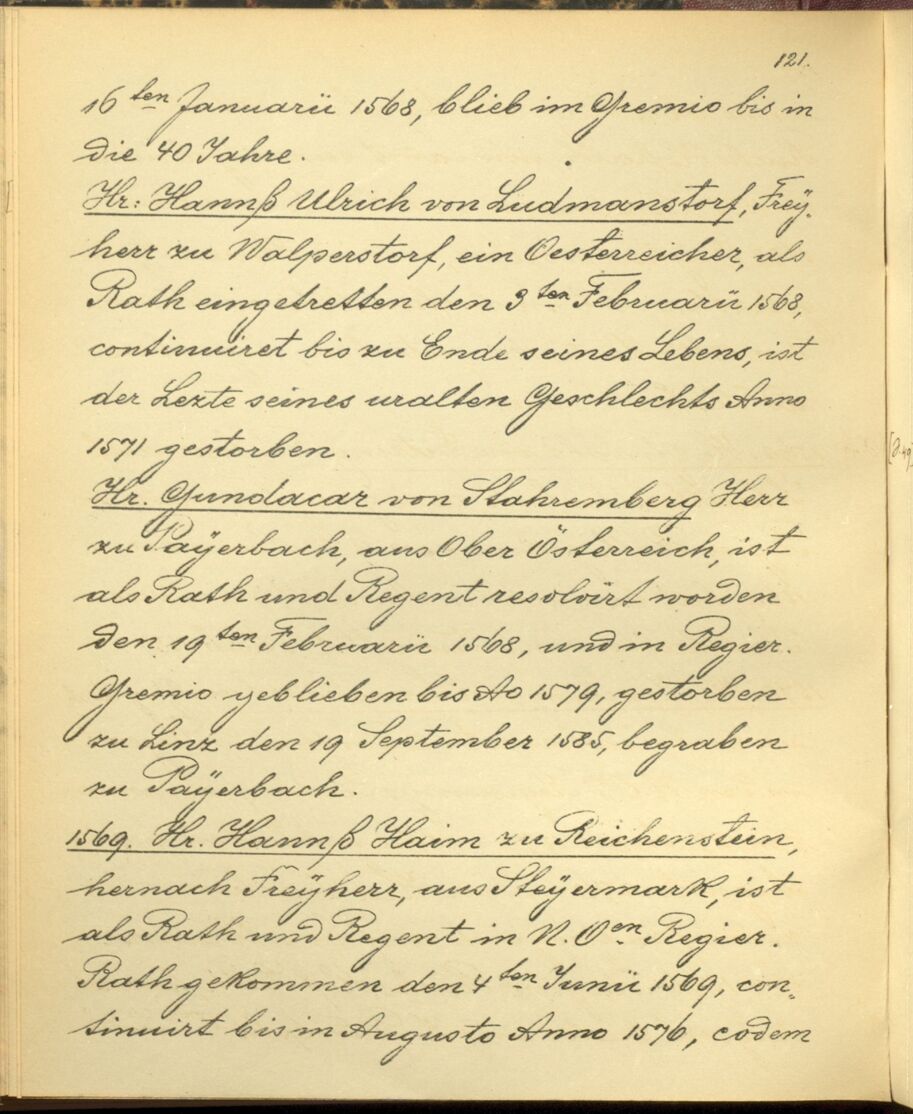 121.
16ten Januarii 1568, blieb im Gremio bis in
die 40 Jahre.
Hr: Hannß Ulrich von Ludmanstorf, Freÿ-
herr zu Walperstorf, ein Oesterreicher, als
Rath eingetretten den 3ten Februarii 1568,
continuiret bis zu Ende seines Lebens, ist
der Lezte seines uralten Geschlechts Anno
1571 gestorben.
Hr. Gundacar von Stahremberg Herr
zu Paÿerbach, aus Ober Österreich, ist
als Rath und Regent resolvirt worden
den 19ten Februarii 1568, und in Regier.
Gremio geblieben bis Ao 1579, gestorben
zu Linz den 19 September 1585, begraben
zu Paÿerbach.
1569. Hr. Hannß Haim zu Reichenstein,
hernach Freÿherr, aus Steÿermark, ist
als Rath und Regent in N. Oen Regier.
Rath gekommen den 4ten Junii 1569, con-
tinuirt bis in Augusto Anno 1576, eodem